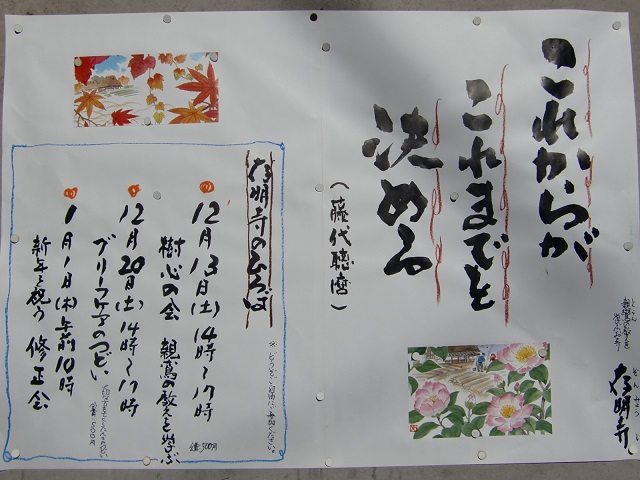 これからが
これまでを
決める
(藤代聰麿)
存明寺のひろば
※どうぞご自由にご参加ください。
12月13日(土)14時〜17時
樹心の会 親鸞の教えを学ぶ
会費500円
12月20日(土)14時〜17時
グリーフケアのつどい
会費500円
1月1日(木)午前10時
新年を祝う 修正会
存明寺